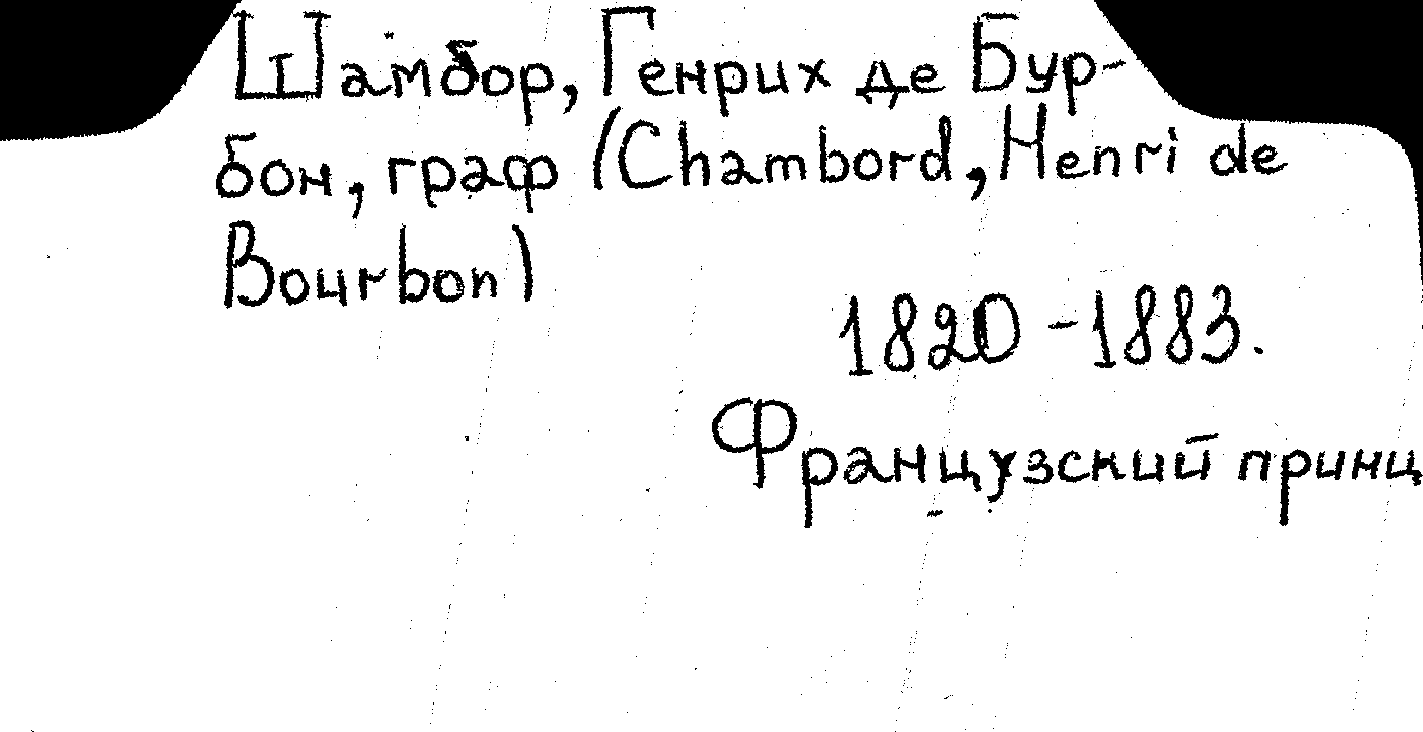 Шамбор, Генрих де Бур-
бон, граф (Chambord, Henri de
Bourbon)
1820-1883.
Французский принц